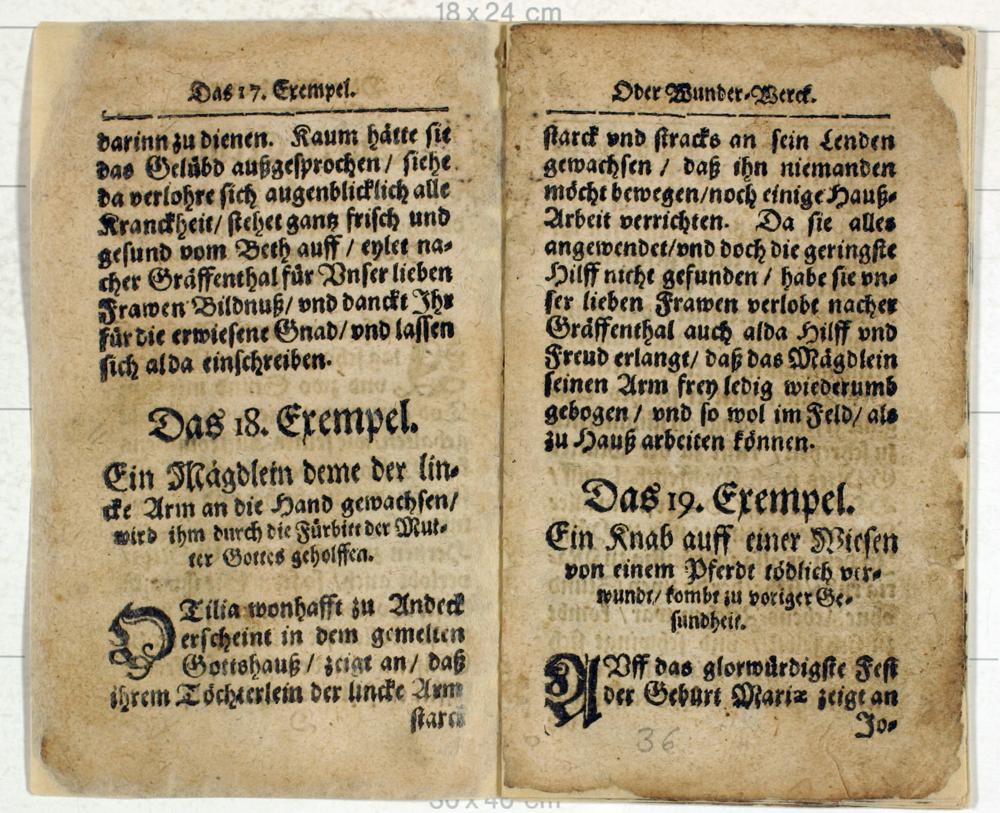 18 x 24 cm
Das 17. Exempel.
darinn zu dienen. Kaum hätte sie
das Gelübd außgesprochen / siehe
da verlohre sich augenblicklich alle
Kranckheit / stehet gantz frisch und
gesund vom Beth auff / eylet na-
cher Gräffenthal für Vnser lieben
Frawen Bildnuß / vnd danckt Ihr
für die erwiesene Gnad / vnd lassen
sich alda einschreiben.
Das 18. Exempel.
Ein Mägdlein deme der lin-
cke Arm an die Hand gewachsen /
wird ihm durch die Fürbitt der Mut-
ter Gottes geholffen.
OTilia wonhafft zu Andeck
erscheint in dem gemelten
Gottshauß / zeigt an / daß
ihrem Töchterlein der lincke Arm
starck
Oder Wunder-Werck.
starck vnd stracks an sein Lenden
gewachsen / daß ihn niemanden
möcht bewegen / noch einige Hauß-
Arbeit verrichten. Da sie alles
angewendet / vnd doch die geringste
Hilff nicht gefunden / habe sie vn-
ser lieben Frawen verlobt nacher
Gräffenthal auch alda Hilff vnd
Freud erlangt / daß das Mägdlein
seinen Arm frey ledig wiederumb
gebogen / vnd so wol im Feld / als
zu Hauß arbeiten können.
Das 19. Exempel.
Ein Knab auff einer Wiesen
von einem Pferdt tödlich ver-
wundt / kombt zu voriger Ge-
sundheit.
AVff das glorwürdigste Fest
der Geburt Mariæ zeigt an
Jo-
36
30 x 40 cm